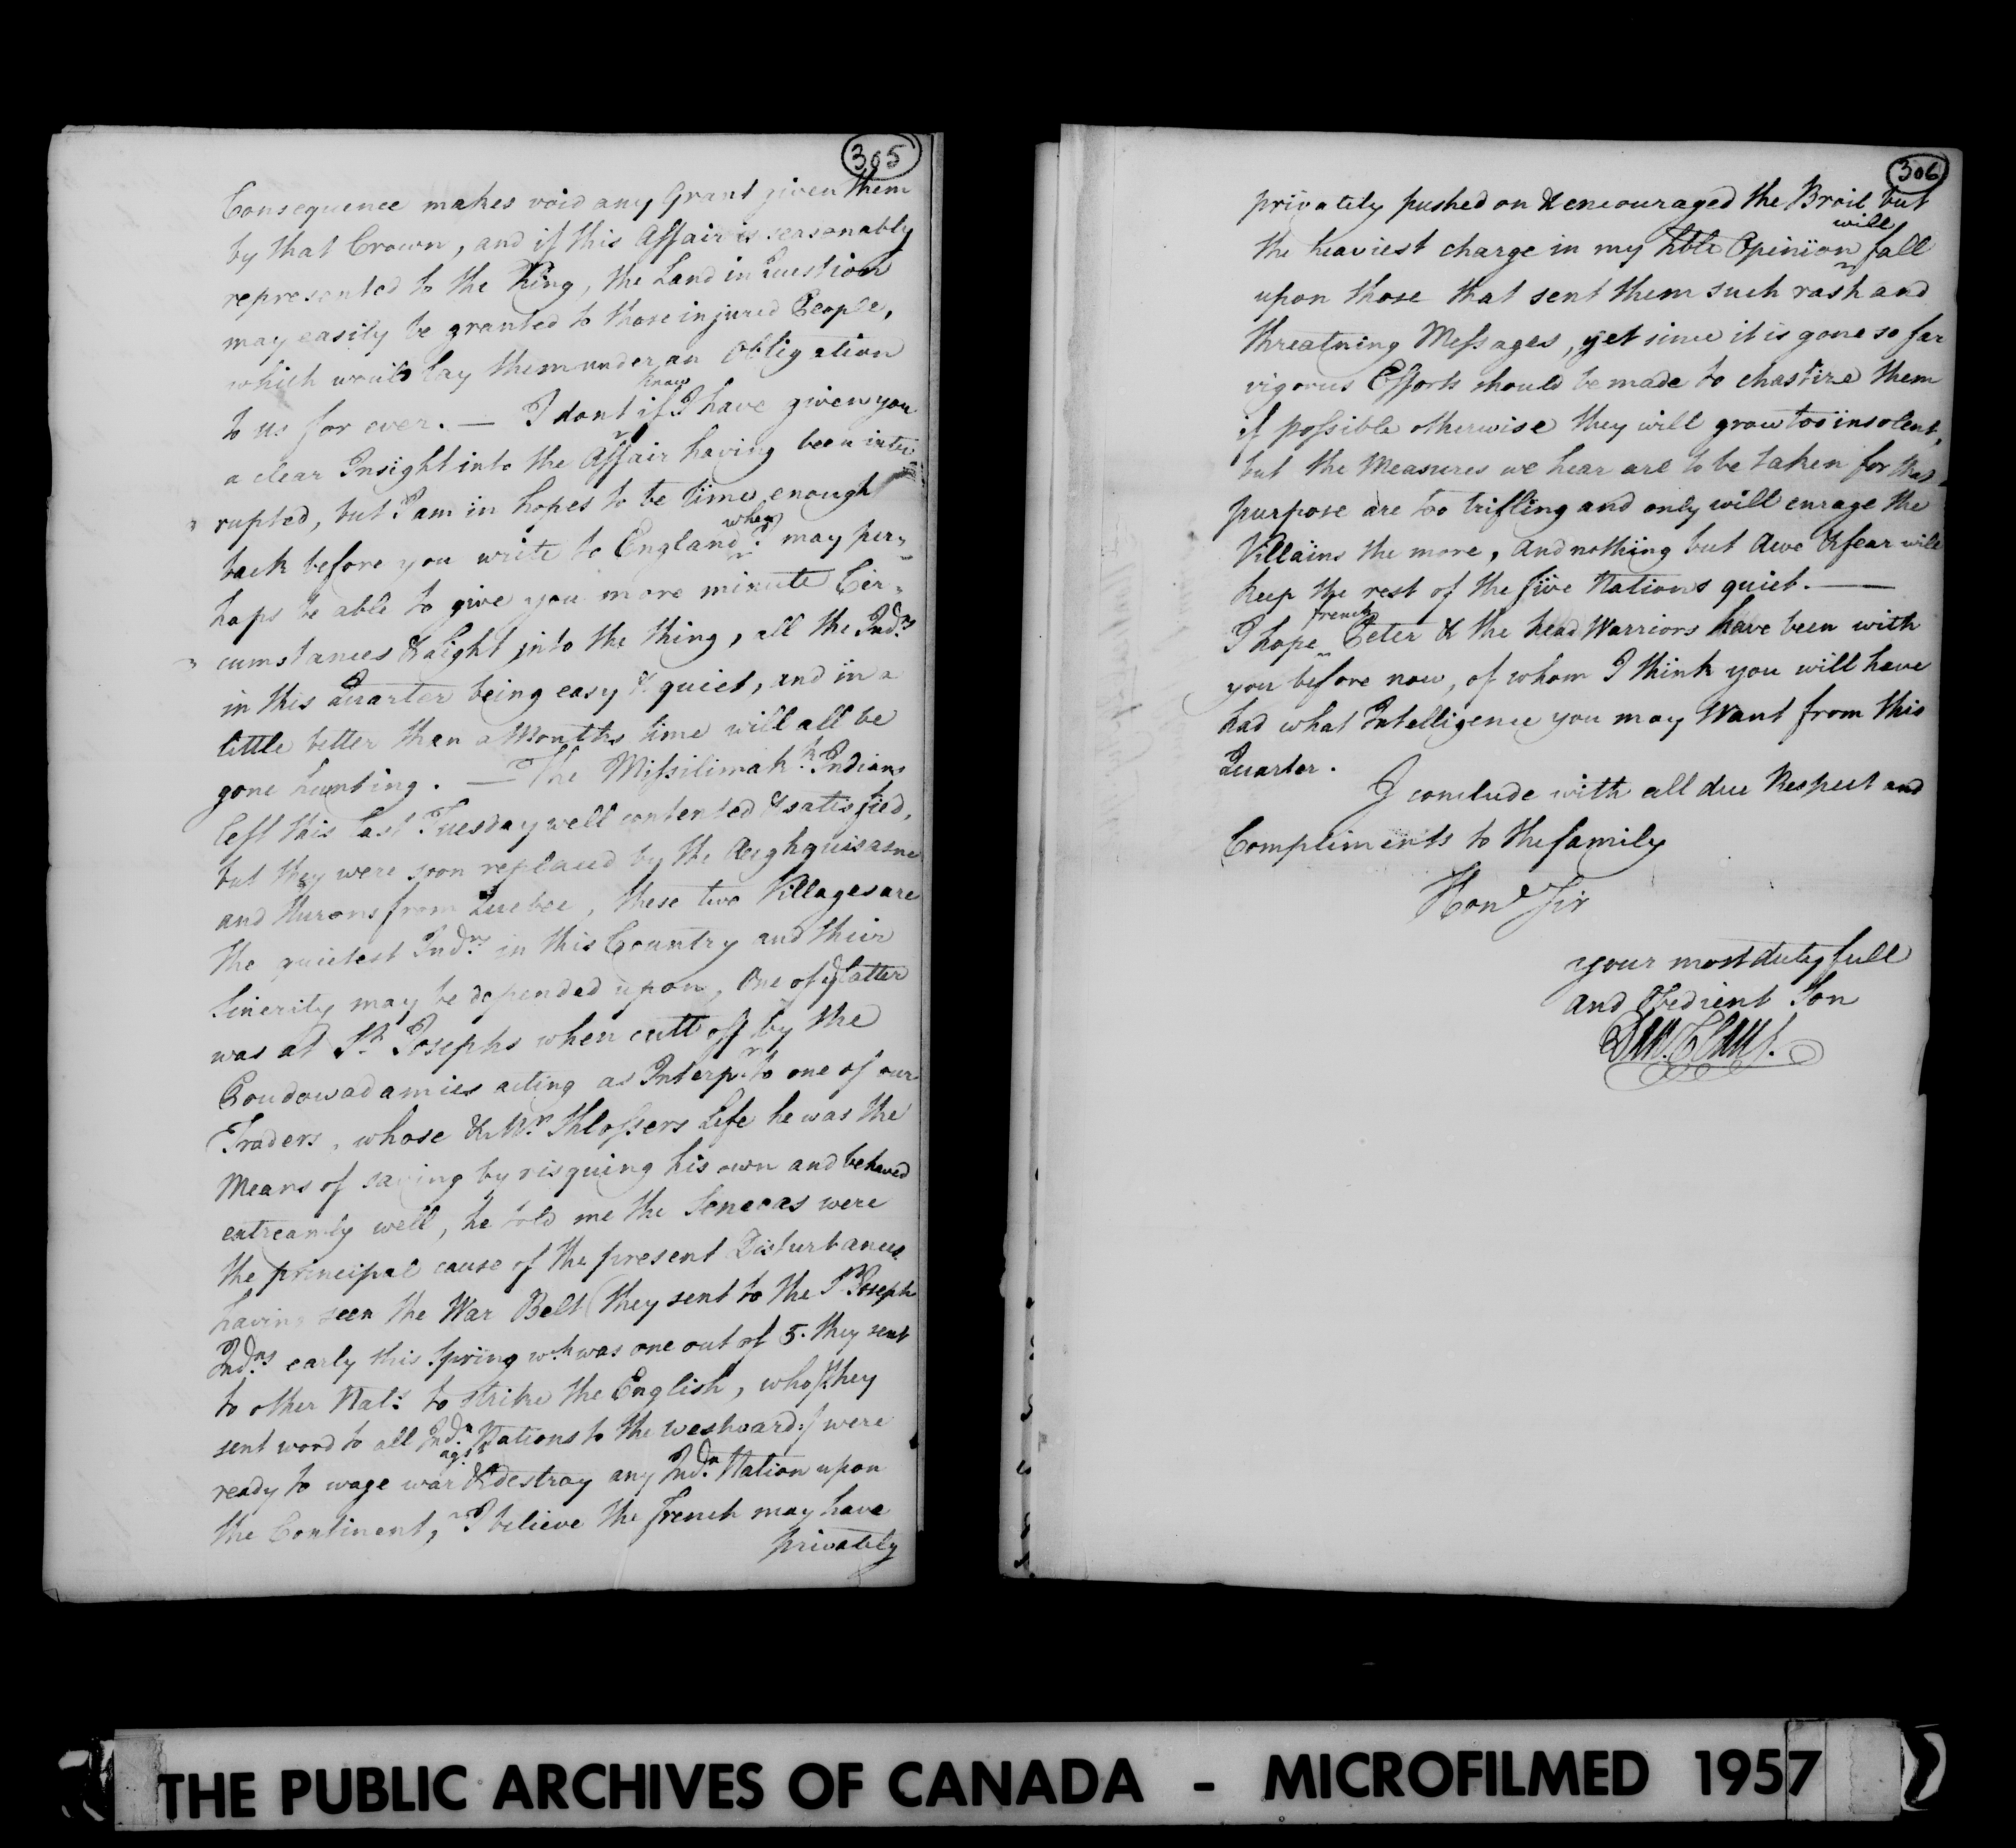 305
Consequence makes void any Grant given them
by that Crown, and if this Affair is seasonably
represented to the King, the Land in Question
may easily be granted to those injured People,
which would lay them under an Obligation
to us for ever. — I dont know if I have given you
a clear Insight into the Affair having been inter
" rupted, but I am in hopes to be time enough
back before you write to England when I may per„
haps be able to give you more minute Cir„
" cumstances & Light into the thing, all the Indns
in this Quarter being easy & quiet, and in a
little better than a Months time will all be
gone hunting. — The Missilimakk Indians
left this last Tuesday well contented & satisfied,
but they were soon replaced by the Aughquisasne
and Hurons from Quebec, these two Villages are
the quietest Indns in this Country and their
Sincerity may be depended upon, One of ye latter
was at St Josephs when cutt off by the
Poudowadamies acting as Interpr to one of our
Traders, whose & Mr Shlossers Life he was the
Means of saving by risquing his own and behaved
extreamly well, he told me the Senecas were
the principal cause of the present Disturbances
having seen the War Belt they sent to the St Joseph
Indns early this Spring wch was one out of 5. they sent
to other Nats to strike the English, who /: they
sent word to all Indn Nations to the westward :/ were
ready to wage war agst & destroy any Indn Nation upon
the Continent, I believe the french may have
privately
306
privately pushed on & encouraged the Broil but
the heaviest charge in my hble Opinion will fall
upon those that sent them such rash and
threatning Messages, yet since it is gone so far
vigorus Efforts should be made to chastize them
if possible otherwise they will grow too insolent,
but the Measures we hear are to be taken for that
purpose are too trifling and only will enrage the
Villains the more, And nothing but Awe & fear will
keep the rest of the five Nations quiet. —
I hope french Peter & the head Warriors have been with
you before now, of whom I think you will have
had what Intelligence you may Want from this
Quarter.
I conclude with all due Respect and
Compliments to the family
Hond Sir
your most dutyfull
and Obedient Son
Dan. Claus.
THE PUBLIC ARCHIVES OF CANADA - MICROFILMED 1957